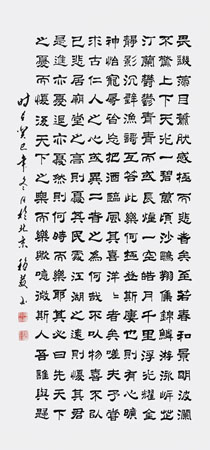 畏譏滿目蕭然感極而悲者矣至若春和景明波瀾
不驚上下天光一碧萬頃沙鷗翔集錦鱗游泳岸芷
汀蘭鬱鬱青青而或長煙一空皓月千里浮光耀金
靜影沉璧漁歌互答此樂何極登斯樓也則有心曠
神怡寵辱皆忘把酒臨風其喜洋々者矣嗟夫予嘗
求古仁人之心或異二者之為何哉不以物喜不以
己悲居廟堂之高則憂其民處江湖之遠則憂其君
是進亦憂退亦憂然則何時而樂耶其必曰先天下
之憂而憂後天下之樂而樂歟噫微斯人吾誰與歸
時在癸巳年冬月於北京